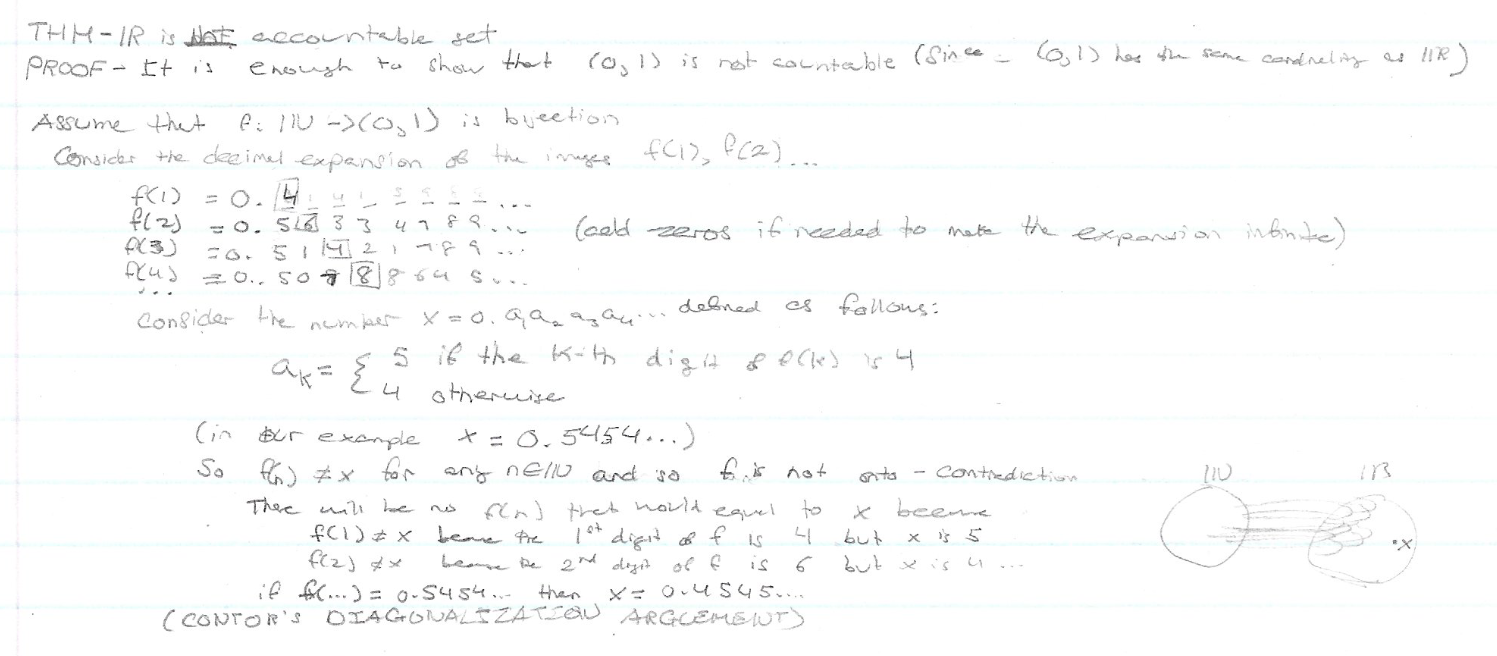 THM - IR is NOT accountable set
PROOF - It is enough to show that (0,1) is not countable (Since - (0,1) has the same cardnality as IR)
Assume that f: IN -> (0,1) is bijection
Consider the decimal expansion of the images f(1), f(2)...
f(1) = 0. 4
f(2) = 0. 5 6 3 3 4 7 8 9...
f(3) = 0. 5 1 4 2 1 7 8 9 ...
f(4) = 0.. 5 0 9 8 8 6 4 5...
(add zeros if needed to make the expansion infinite)
...
Consider the number x = 0. a1 a2 a3 a4... defined as follows:
ak = { 5 if the k-th digit of f(k) is 4
4 otherwise
(in our example x = 0.5454...)
So f(n) ≠ x for any n ∈ IN and so f is not onto - contradiction
There will be no f(n) that would equal to x because
f(1) ≠ x because the 1st digit of f is 4 but x is 5
f(2) ≠ x because the 2nd digit of f is 6 but x is 4 ...
if f(...) = 0.5454... then x = 0.4545....
(CONTOR'S DIAGONALIZATION ARGUEMENT)
IN
IR
•x